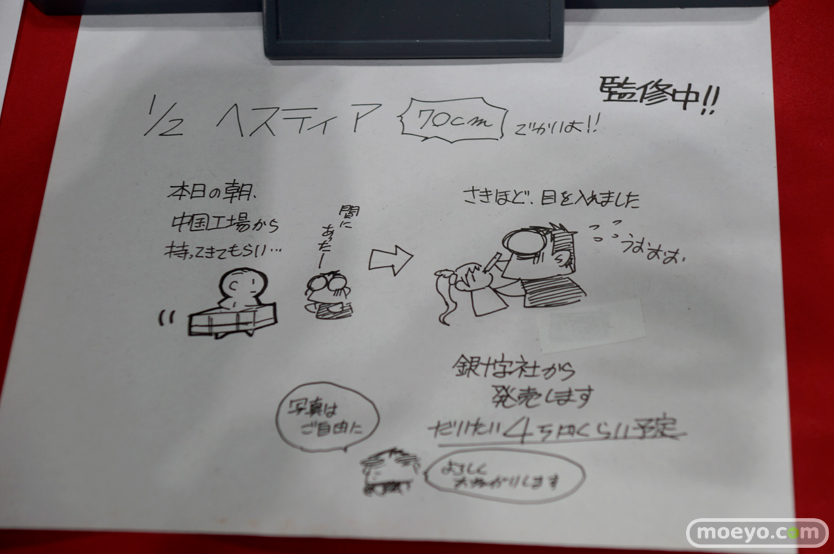 監修中!!
1/2 ヘスティア 70cm でかいよ!!
本日の朝、
中国工場から
持ってきてもらい…
間に
あったー
さきほど、目を入れました
うおおお、
銀十字社から
発売します
だいたい4ケ月くらい予定
写真は
ご自由に
よろしく
おねがいします
moeyo.com